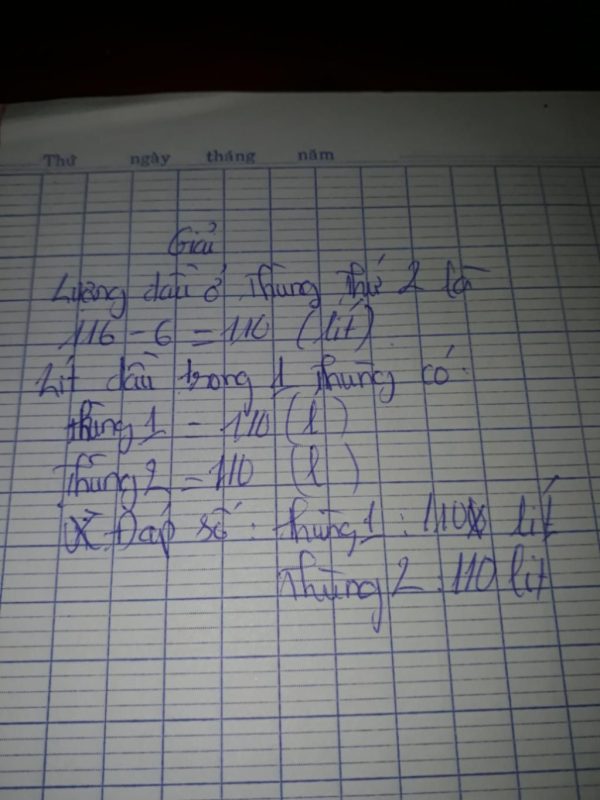 Thứ ngày tháng năm
Giải
Lượng dầu ở thùng thứ 2 là
116 - 6 = 110 (lít)
Lít dầu trong 1 thùng có:
thùng 1 = 110 (l)
Thùng 2 = 110 (l)
Đáp số: thùng 1: 110 lít
Thùng 2: 110 lít